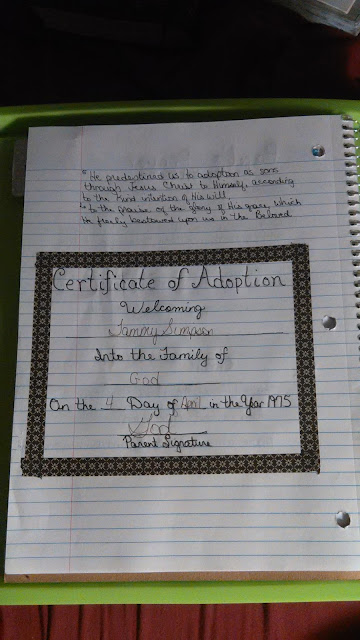 "He predestined us to adoption as sons
through Jesus Christ to Himself, according
to the kind intention of His will,
to the praise of the glory of His grace, which
He freely bestowed upon us in the Beloved
Certificate of Adoption
Welcoming
Tammy Simpson
Into the Family of
God
On the 4 Day of April in the Year 1975
God
Parent Signature